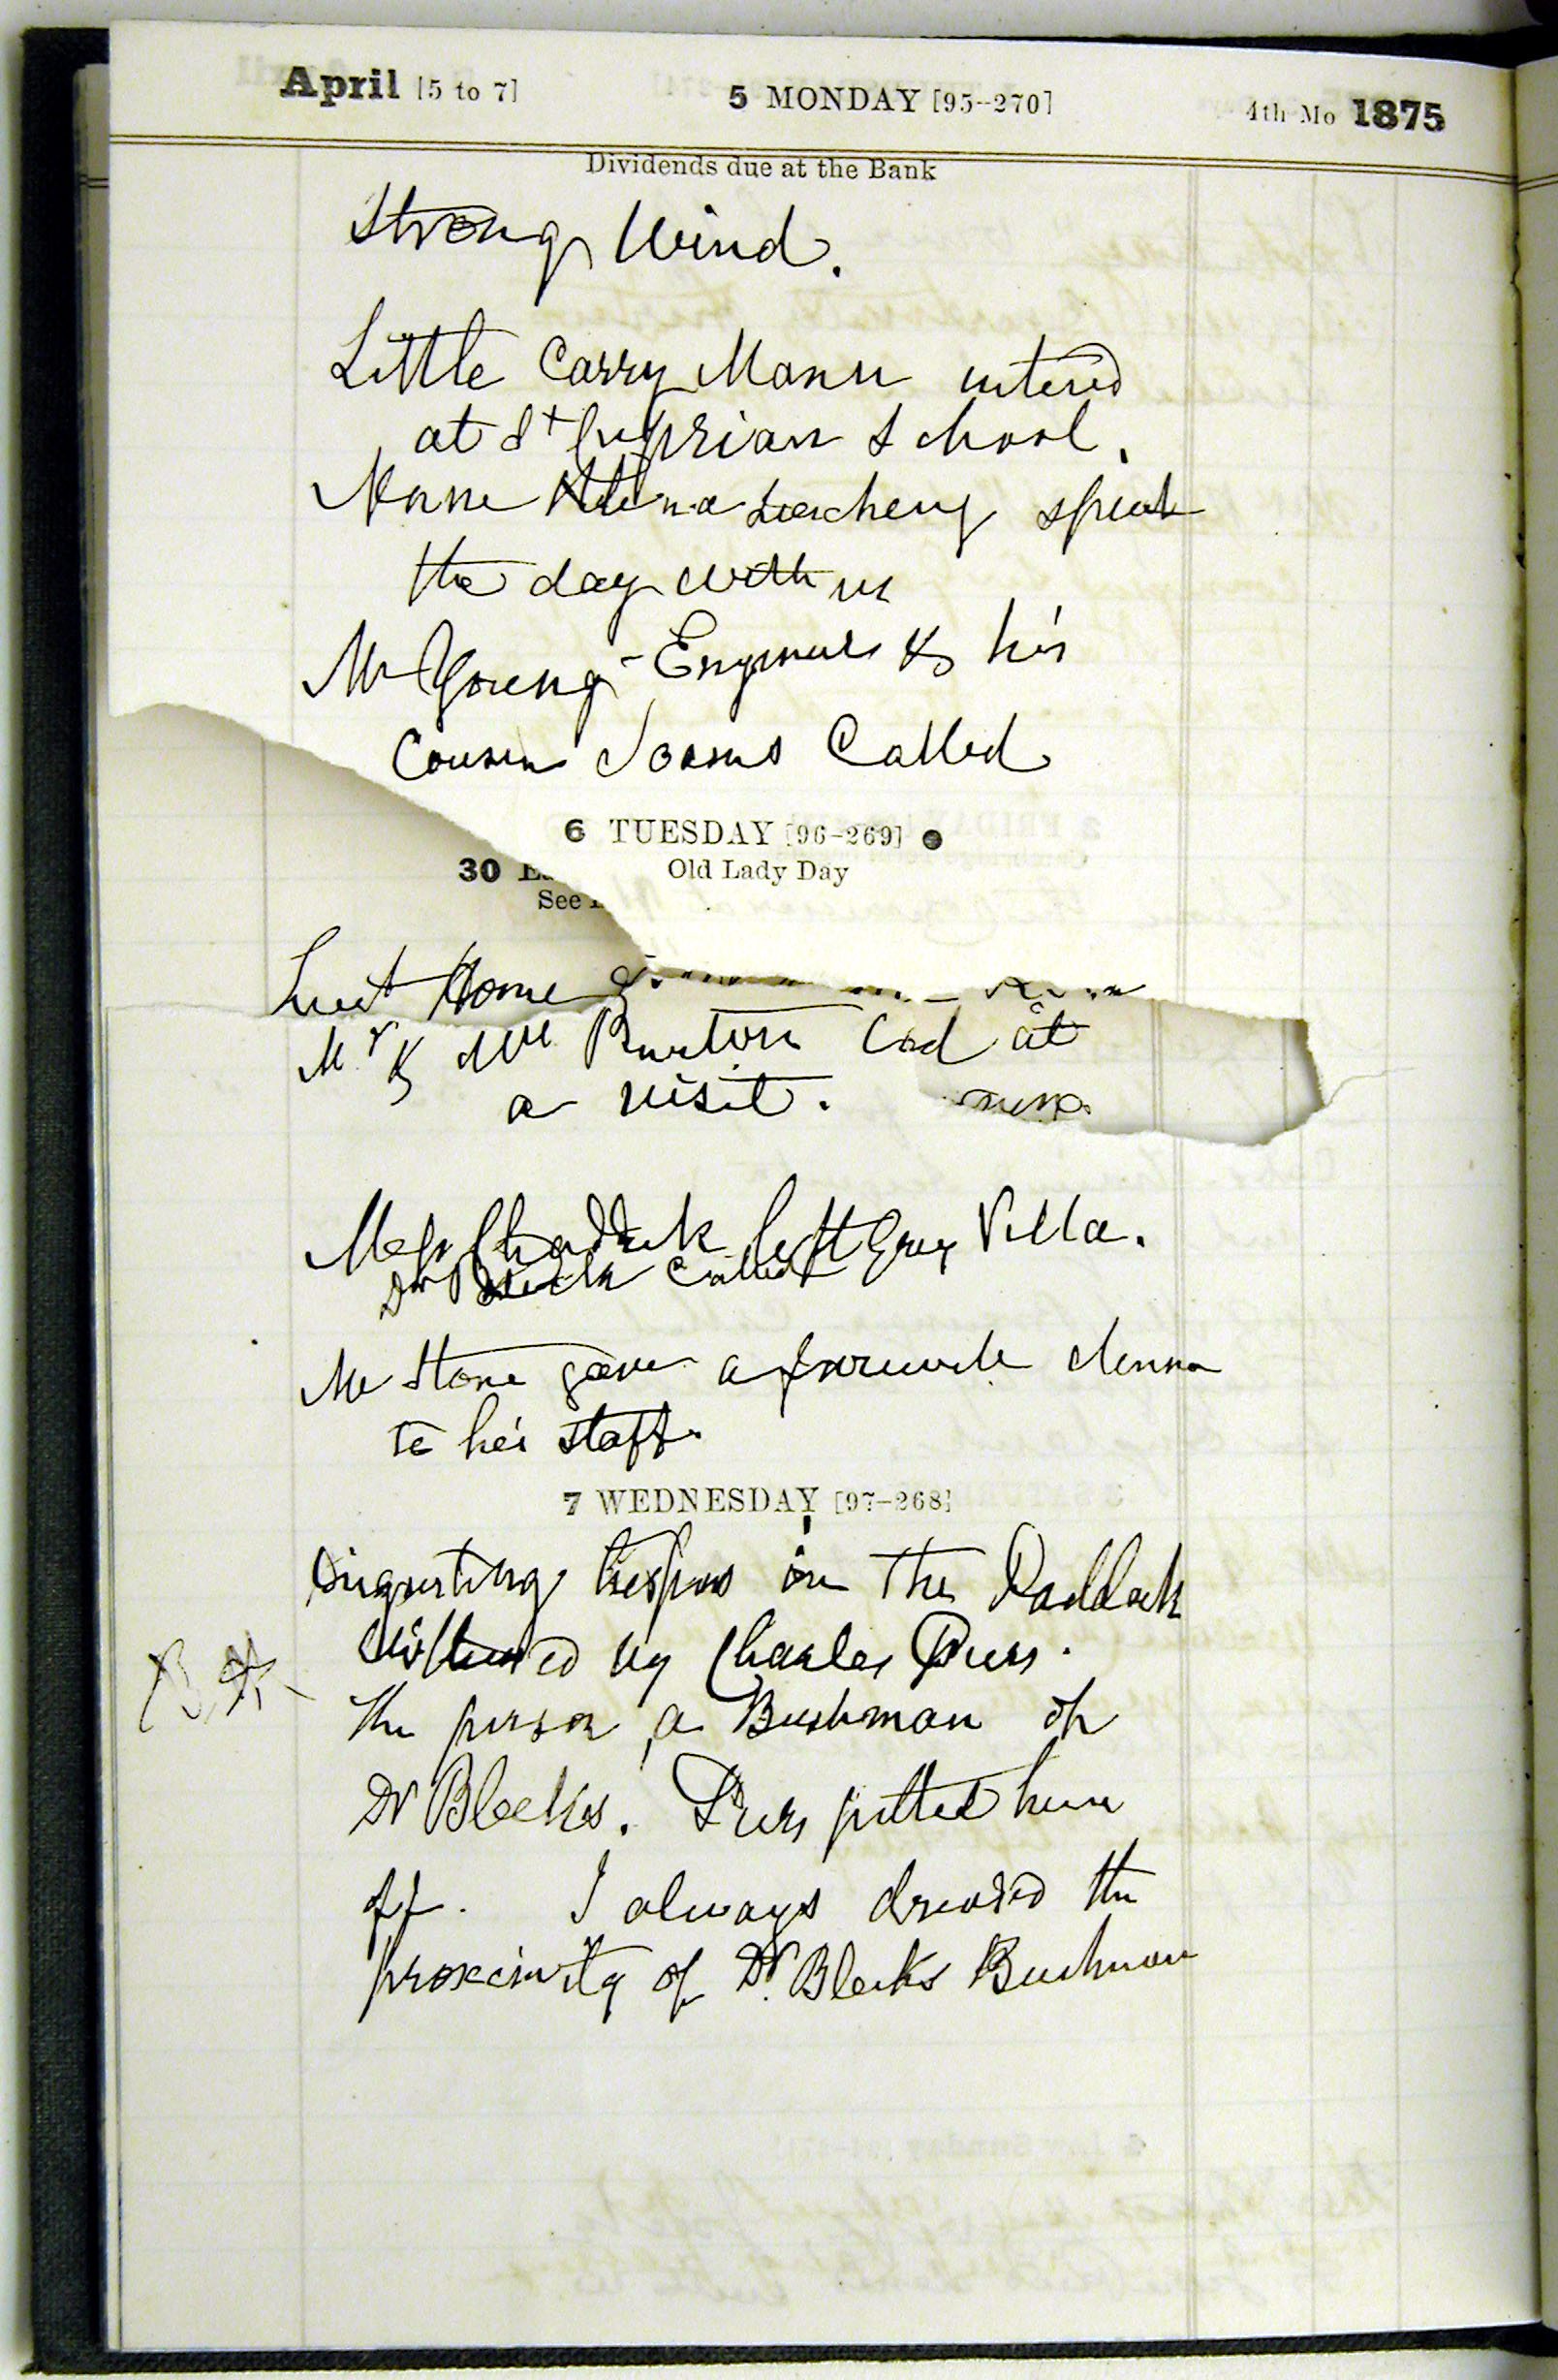 April [5 to 7] 5 MONDAY [95-270] 4th Mo 1875
Dividends due at the Bank
Strong Wind.
Little Carry Mann entered
at St Cyprian School.
spent
the day with us
Mr Young Engineer & his
Cousin Called
6 TUESDAY [96-269]
30 Old Lady Day
See
Home
Mr & Mrs Burton at
a visit.
left Grey Villa.
Dr Bleek called
Mr Stone gave a farewell dinner
to his staff.
7 WEDNESDAY [97-268]
Disgusting trespass in the Paddock
witnessed by Charles Piers.
The person a Bushman of
Dr Bleeks. Piers pelted him
off. I always dreaded the
proximity of Dr. Bleeks Bushman